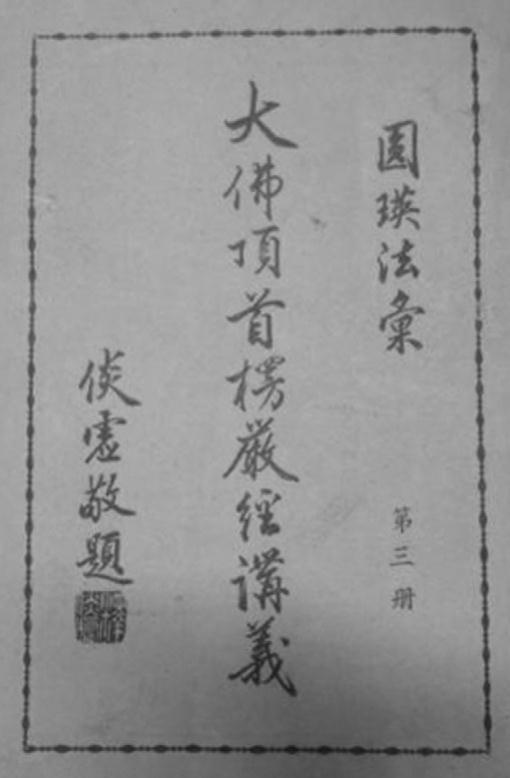 圓瑛法彙
第三册
大佛頂首楞嚴經講義
倓虛敬題